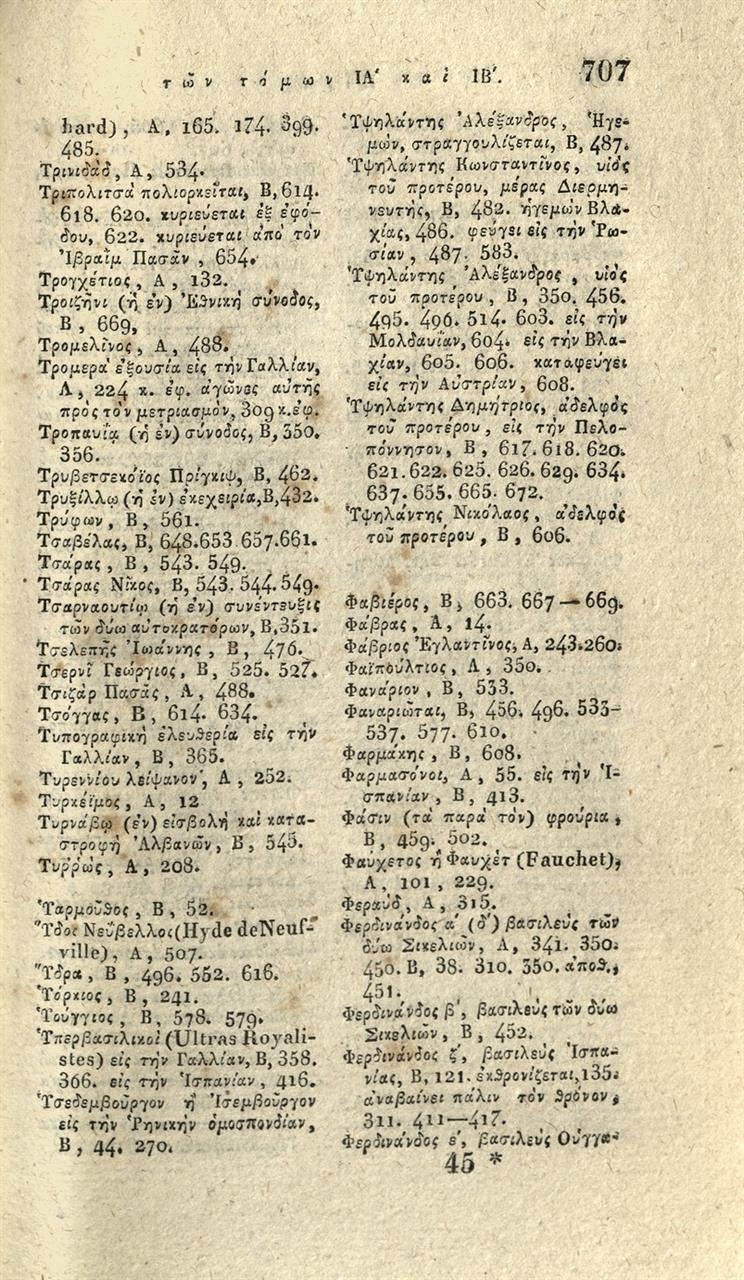 τῶν τόμων ΙΑ′ καὶ ΙΒ′. 707
hard), Α, 165. 174. 399.
485.
Τρινιδὰδ, Α, 534.
Τριπολιτσὰ πολιορκεῖται, Β, 614.
618. 620. κυριεύεται ἐξ ἐφό-
δου, 622. κυριεύεται ἀπὸ τὸν
Ἰβραῒμ Πασᾶν, 654.
Τρογχέτιος, Α, 132.
Τροιζῆνι (ἡ ἐν) Ἐθνικὴ σύνοδος,
Β, 669,
Τρομελῖνος, Α, 488.
Τρομερὰ ἐξουσία εἰς τὴν Γαλλίαν,
Α, 224 κ. ἐφ. ἀγῶνες αὐτῆς
πρὸς τὸν μετριασμὸν, 309 κ. ἐφ.
Τροπαυΐᾳ (ἡ ἐν) σύνοδος, Β, 350.
356.
Τρυβετσεκόϊος Πρίγκιψ, Β, 462.
Τρυξίλλῳ (ἡ ἐν) ἐκεχειρία, Β, 432.
Τρύφων, Β, 561.
Τσαβέλας, Β, 648. 653 657. 661.
Τσάρας, Β, 543. 549.
Τσάρας Νῖκος, Β, 543. 544. 549.
Τσαρναουτίῳ (ἡ ἐν) συνέντευξις
τῶν δύω αὐτοκρατόρων, Β, 351.
Τσελεπῆς Ἰωάννης, Β, 476.
Τσερνῖ Γεώργιος, Β, 525. 527.
Τσιζὰρ Πασᾶς, Α, 488.
Τσόγγας, Β, 614. 634.
Τυπογραφικὴ ἐλευθερία εἰς τὴν
Γαλλίαν, Β, 365.
Τυρεννίου λείψανον, Α, 252.
Τυρκέϊμος, Α, 12
Τυρνάβῳ (ἐν) εἰσβολὴ καὶ κατα-
στροφὴ Ἀλβανῶν, Β, 545.
Τυῤῥώς, Α, 208.
Ὑαρμοῦθος, Β, 52.
Ὕδος Νεύβελλος (Hyde de Neuf-
ville), Α, 507.
Ὕδρα, Β, 496. 552. 616.
Ὑόρκιος, Β, 241.
Ὑούγγιος, Β, 578. 579.
Ὑπερβασιλικοὶ (Ultras Royali-
stes) εἰς τὴν Γαλλίαν, Β, 358.
366. εἰς τὴν Ἱσπανίαν, 416.
Ὑσεδεμβοῦργον ἢ Ἰσεμβοῦργον
εἰς τὴν Ῥηνικὴν ὁμοσπονδίαν,
Β, 44. 270.
Ὑψηλάντης Ἀλέξανδρος, Ἡγε-
μὼν, στραγγουλίζεται, Β, 487.
Ὑψηλάντης Κωνσταντῖνος, υἱὸς
τοῦ προτέρου, μέρας Διερμη-
νευτὴς, Β, 482. ἡγεμὼν Βλα-
χίας, 486. φεύγει εἰς τὴν Ῥω-
σίαν, 487. 583.
Ὑψηλάντης Ἀλέξανδρος, υἱὸς
τοῦ προτέρου, Β, 350. 456.
495. 496. 514. 603. εἰς τὴν
Μολδαυΐαν, 604. εἰς τὴν Βλα-
χίαν, 605. 606. καταφεύγει
εἰς τὴν Αὐστρίαν, 608.
Ὑψηλάντης Δημήτριος, ἀδελφὸς
τοῦ προτέρου, εἰς τὴν Πελο-
πόννησον, Β, 617. 618. 620.
621. 622. 625. 626. 629. 634.
637. 655. 665. 672.
Ὑψηλάντης Νικόλαος, ἀδελφὸς
τοῦ προτέρου, Β, 606.
Φαβιέρος, Β, 663. 667—669.
Φάβρας, Α, 14.
Φάβριος Ἐγλαντῖνος, Α, 243. 260.
Φαϊπούλτιος, Α, 350.
Φανάριον, Β, 533.
Φαναριῶται, Β, 456. 496. 533-
537. 577. 610.
Φαρμάκης, Β, 608.
Φαρμασόνοι, Α, 55. εἰς τὴν Ἱ-
σπανίαν, Β, 413.
Φάσιν (τὰ παρὰ τὸν) φρούρια,
Β, 459. 502.
Φαύχετος ἢ Φαυχὲτ (Fauchet),
Α, 101, 229.
Φεραὺδ, Α, 315.
Φερδινάνδος α′ (δ′) βασιλεὺς τῶν
δύω Σικελιῶν, Α, 341. 350.
450. Β, 38. 310. 350. ἀποθ.,
451.
Φερδινάνδος β′, βασιλεὺς τῶν δύω
Σικελιῶν, Β, 452.
Φερδινάνδος ζ′, βασιλεὺς Ἱσπα-
νίας, Β, 121. ἐκθρονίζεται, 135.
ἀναβαίνει πάλιν τὸν θρόνον,
311. 411—417.
Φερδινάνδος ε′, βασιλεὺς Οὑγγα-
45 *